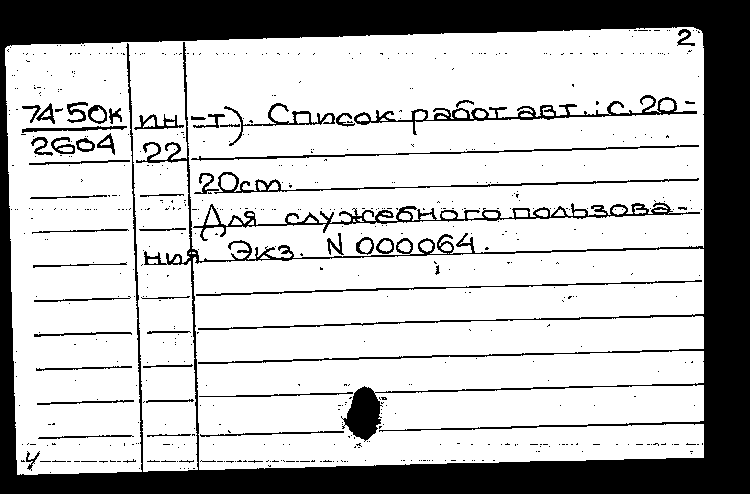 2
74-50к ин-т). Список работ авт.: с. 20-
2604 22
20см.
Для служебного пользова-
ния. Экз. N 000064.